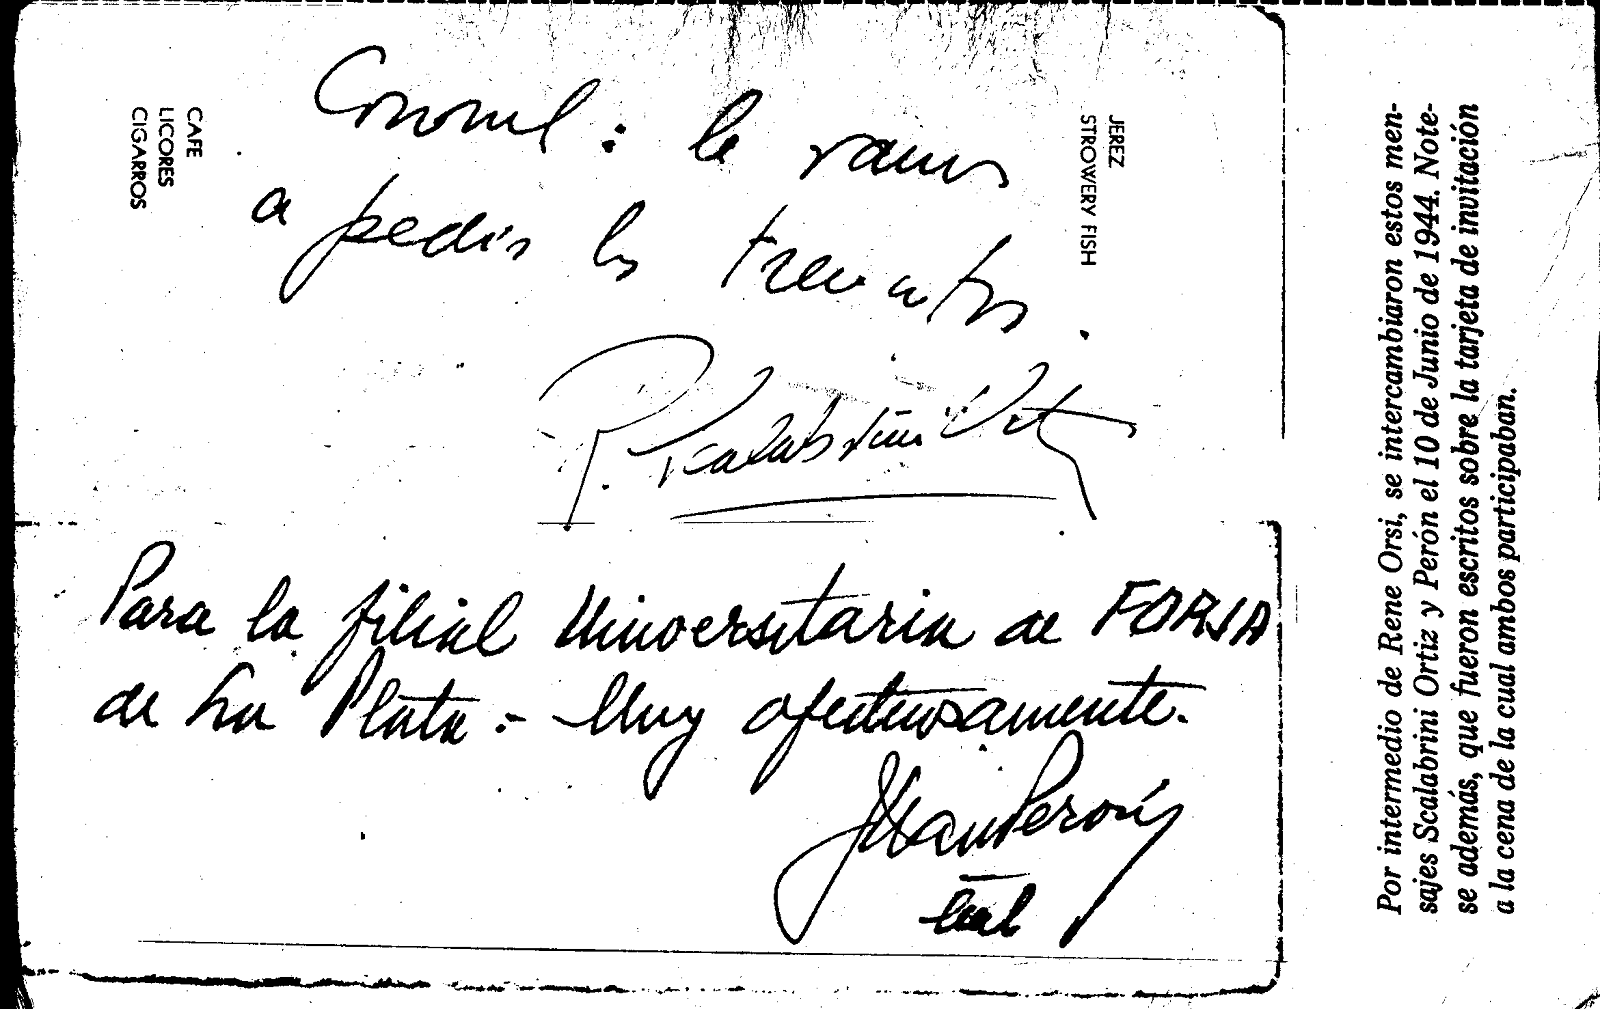 CAFE
LICORES
CIGARROS
JEREZ
STROWERY FISH
Coronel: le vamos
a pedir los trencitos.
R. Scalabrini Ortiz
Para la filial Universitaria de FORJA
de La Plata.- Muy afectuosamente.
Juan Perón
Cnel
Por intermedio de Rene Orsi, se intercambiaron estos men-
sajes Scalabrini Ortiz y Perón el 10 de Junio de 1944. Note-
se además, que fueron escritos sobre la tarjeta de invitación
a la cena de la cual ambos participaban.